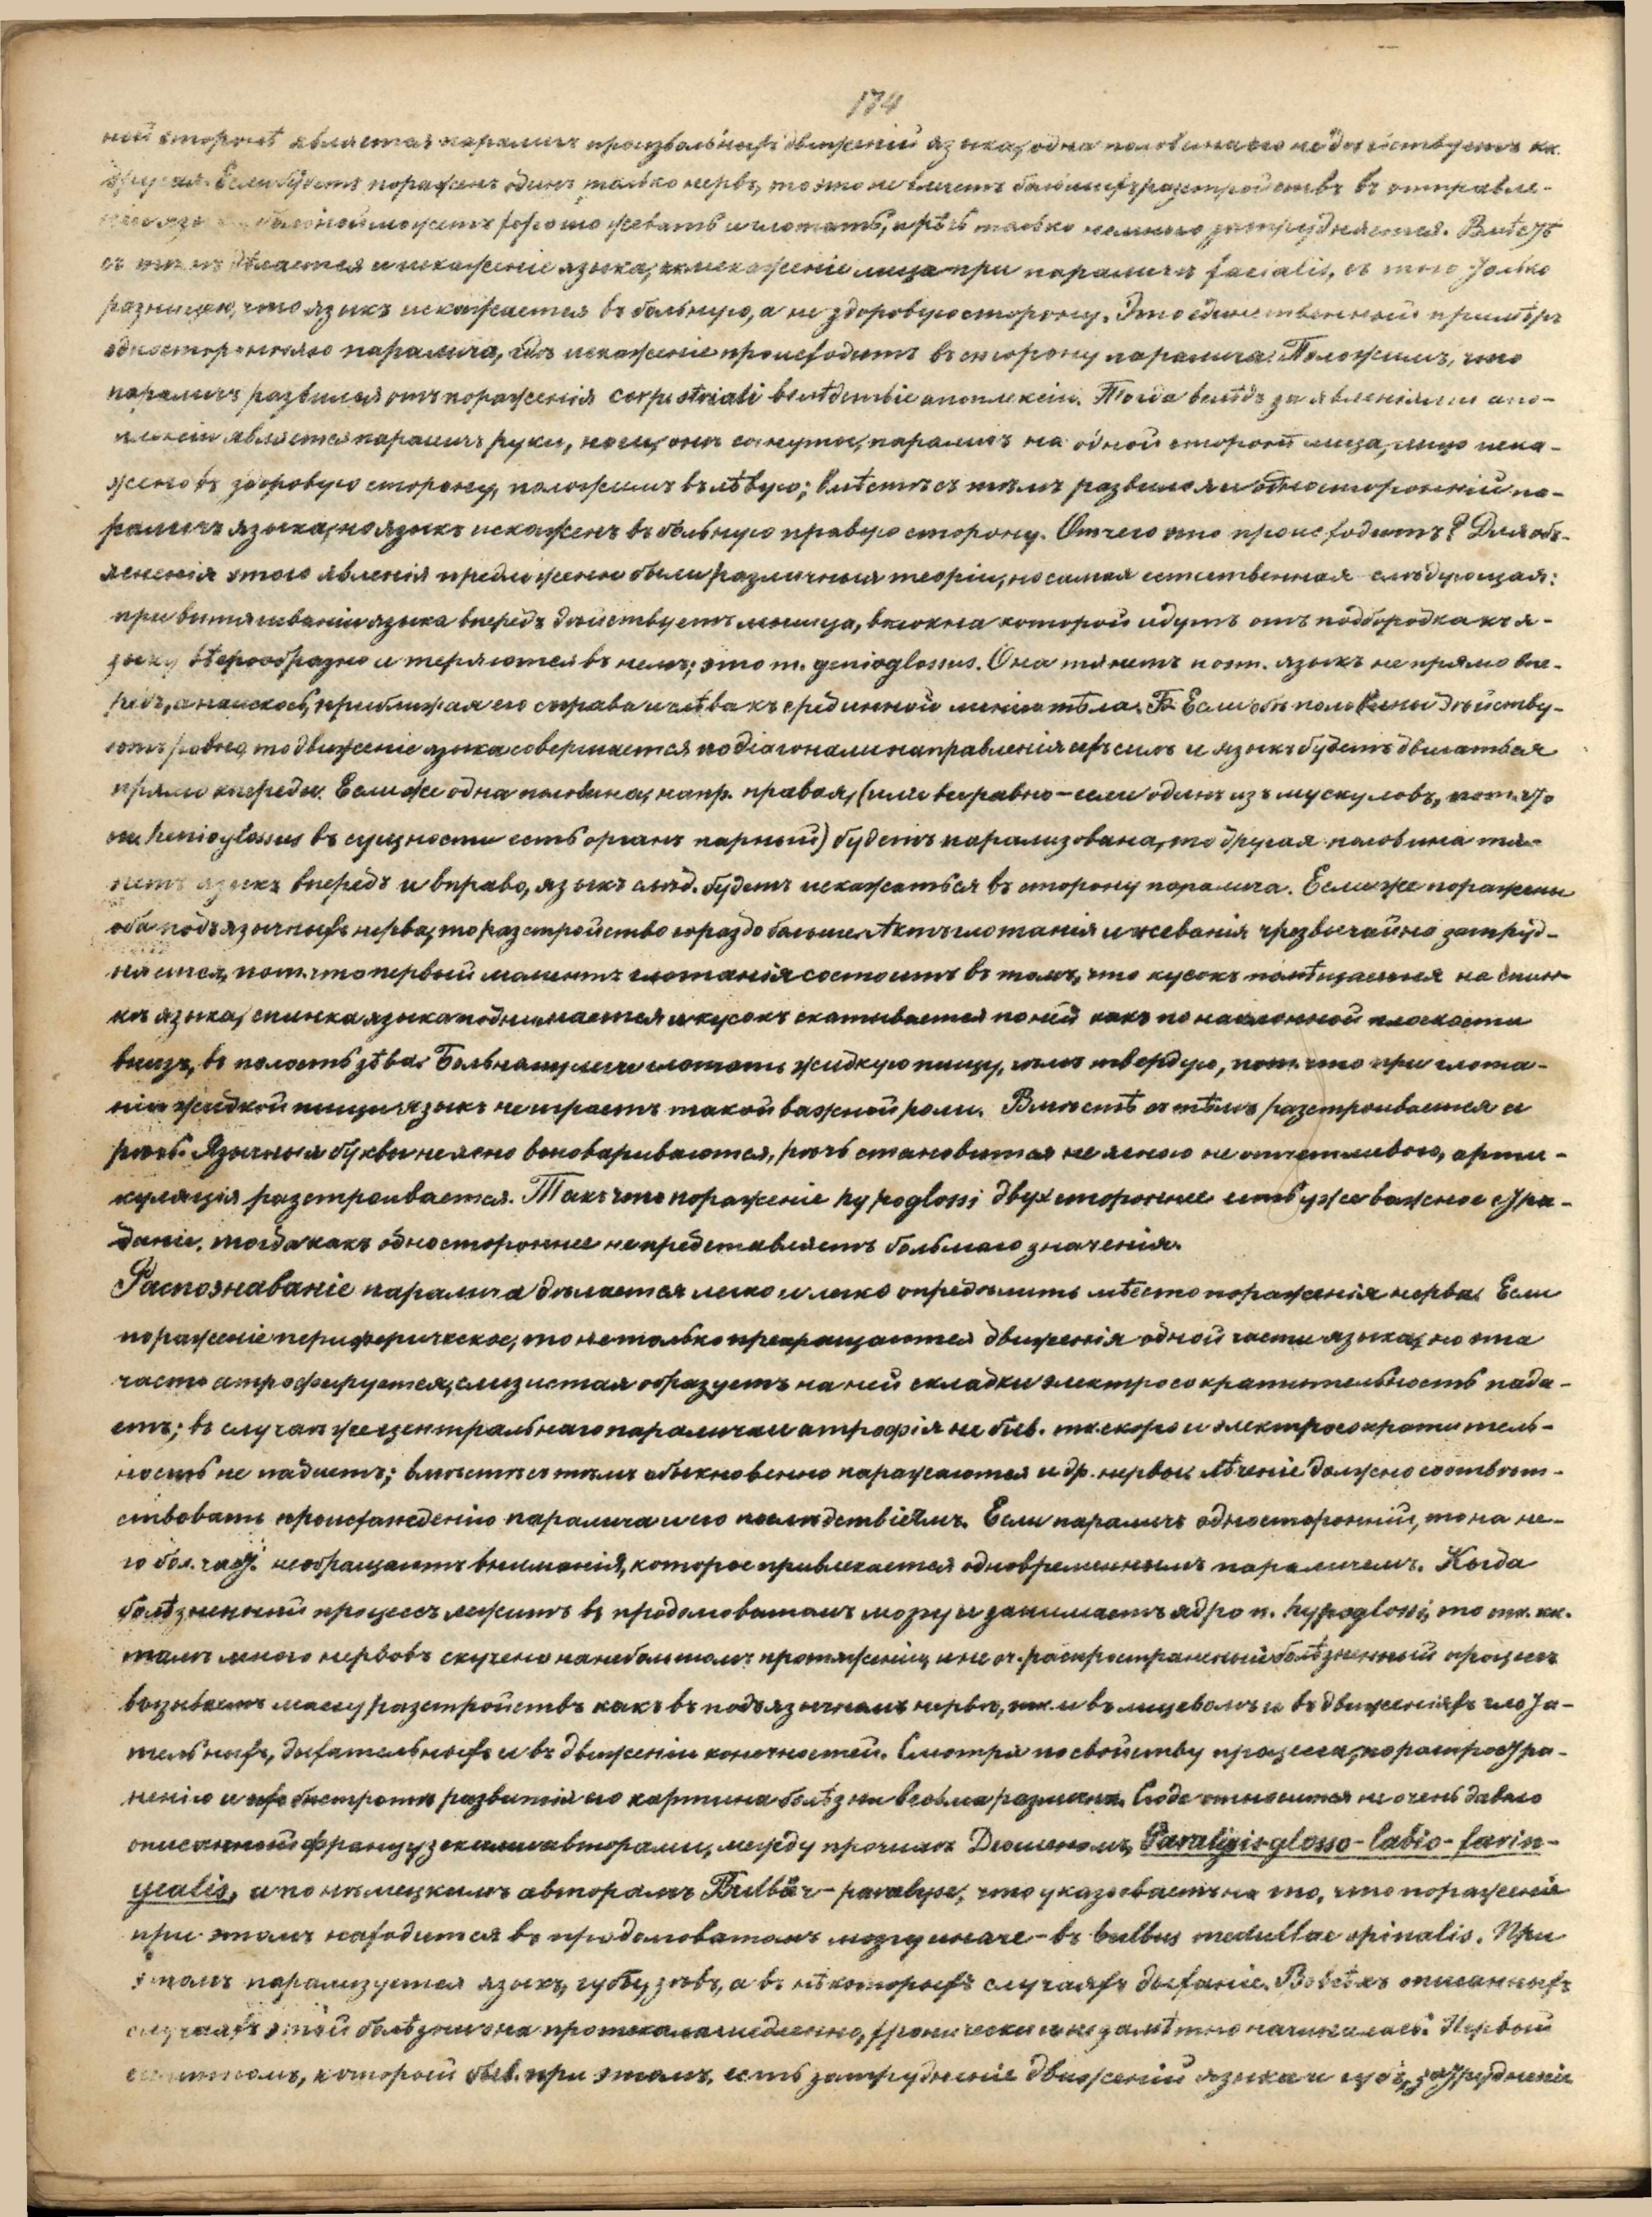 174
ной сторонѣ является параличъ произвольныхъ движеній языка, одна половина его не дѣйствуетъ кк.
другая. Если будетъ пораженъ одинъ только нервъ, то это не влечетъ большихъ разстройствъ въ отправле-
больной можетъ хорошо жевать и глотать, и рѣчь только немного затрудняется. Вмѣстѣ
съ тѣмъ дѣлается и искаженіе языка, кк искаженіе лица при параличѣ facialis, съ тою только
разницею, что языкъ искажается въ больную, а не здоровую сторону. Это единственный примѣръ
односторонняго паралича, гдѣ искаженіе происходитъ въ сторону паралича. Положимъ, что
параличъ развился отъ пораженія corp. striati вслѣдствіе апоплексіи. Тогда вслѣдъ за явленіями апо-
плексіи является параличъ руки, ноги, они согнуты, параличъ на одной сторонѣ лица, лицо иска-
жено въ здоровую сторону, положимъ въ лѣвую; вмѣстѣ съ тѣмъ развился и односторонній па-
раличъ языка, но языкъ искаженъ въ больную правую сторону. Отчего это происходитъ? Для объ-
ясненія этого явленія предложены были различныя теоріи, но самая естественная слѣдующая:
при вытягиваніи языка впередъ дѣйствуетъ мышца, волокна которой идутъ отъ подбородка къ я-
зыку вѣерообразно и теряются въ немъ; это m. genioglossus. Она тянетъ пот. языкъ не прямо впе-
редъ, а наискось, приближая его справа и слѣва къ срединной линіи тѣла. Если обѣ половины дѣйству-
ютъ равно, то движеніе языка совершается по діагонали направленія ихъ силъ и языкъ будетъ двигаться
прямо кпереди. Если же одна половина, напр. правая, (или все равно - если одинъ изъ мускуловъ, пот. что
henioglossus въ сущности есть органъ парный) будетъ парализована, то другая половина тя-
нетъ языкъ впередъ и вправо, языкъ слѣд. будетъ искажаться въ сторону паралича. Если же поражены
оба подъязычныхъ нерва, то разстройство гораздо больше. Актъ глотанія и жеванія чрезвычайно затруд-
няется, пот. что первый моментъ глотанія состоитъ въ томъ, что кусокъ помѣщается на спин-
кѣ языка, спинка языка поднимается и кусокъ скатывается по ней какъ по наклонной плоскости
внизъ, въ полость зѣва. Больному легче глотать жидкую пищу, чѣмъ твердую, пот. что при глота-
ніи жидкой пищи языкъ не играетъ такой важной роли. Вмѣстѣ съ тѣмъ разстроивается и
рѣчь. Язычныя буквы неясно выговариваются, рѣчь становится неясною не отчетливою, арти-
куляція разстроивается. Такъ что пораженіе hypoglossi двухстороннее есть уже важное стра-
даніе, тогда какъ одностороннее не представляетъ большаго значенія.
Распознаваніе паралича дѣлается легко и легко опредѣлить мѣсто пораженія нерва. Если
пораженіе периферическое, то не только прекращаются движенія одной части языка, но эта
часть атрофируется, слизистая образуетъ на ней складки электросократительность пада-
етъ; въ случаѣ же центральнаго паралича и атрофія не быв. тк. скоро и электросократитель-
ность не падаетъ; вмѣстѣ съ тѣмъ обыкновенно поражаются и др. нервы. Лѣченіе должно соотвѣт-
ствовать происхожденію паралича и его послѣдствіямъ. Если параличъ односторонній, то на не-
го бол. част. не обращаютъ вниманія, которое привлекается одновременнымъ параличемъ. Когда
болѣзненный процессъ лежитъ въ продолговатомъ мозгу и занимаетъ ядро n. hypoglossi, то тк. кк.
тамъ много нервовъ скучено на небольшомъ протяженіи, и не оч. распространенный болѣзненный процессъ
вызываетъ массу разстройствъ какъ въ подъязычномъ нервѣ, тк. и въ лицевомъ и въ движеніяхъ глота-
тельныхъ, дыхательныхъ и въ движеніи конечностей. Смотря по свойству процесса, по распростра-
ненію и по быстротѣ развитія его картина болѣзни весьма различна. Сюда относится не очень давно
описанный французскими авторами, между прочимъ Дюшеномъ, Paralysis glosso-labio-larin-
gealis, а по нѣмецкимъ авторамъ Bulbär-paralyse, что указываетъ на то, что пораженіе
при этомъ находится въ продолговатомъ мозгу иначе - въ bulbus medullae spinalis. При
этомъ парализуется языкъ, губы, зѣвъ, а въ нѣкоторыхъ случаяхъ дыханіе. Во всѣхъ описанныхъ
случаяхъ этой болѣзни она протекала медленно, хронически и незамѣтно начиналась. Первый
симптомъ, который быв. при этомъ, есть затрудненіе движеній языка и губъ, затрудненіе